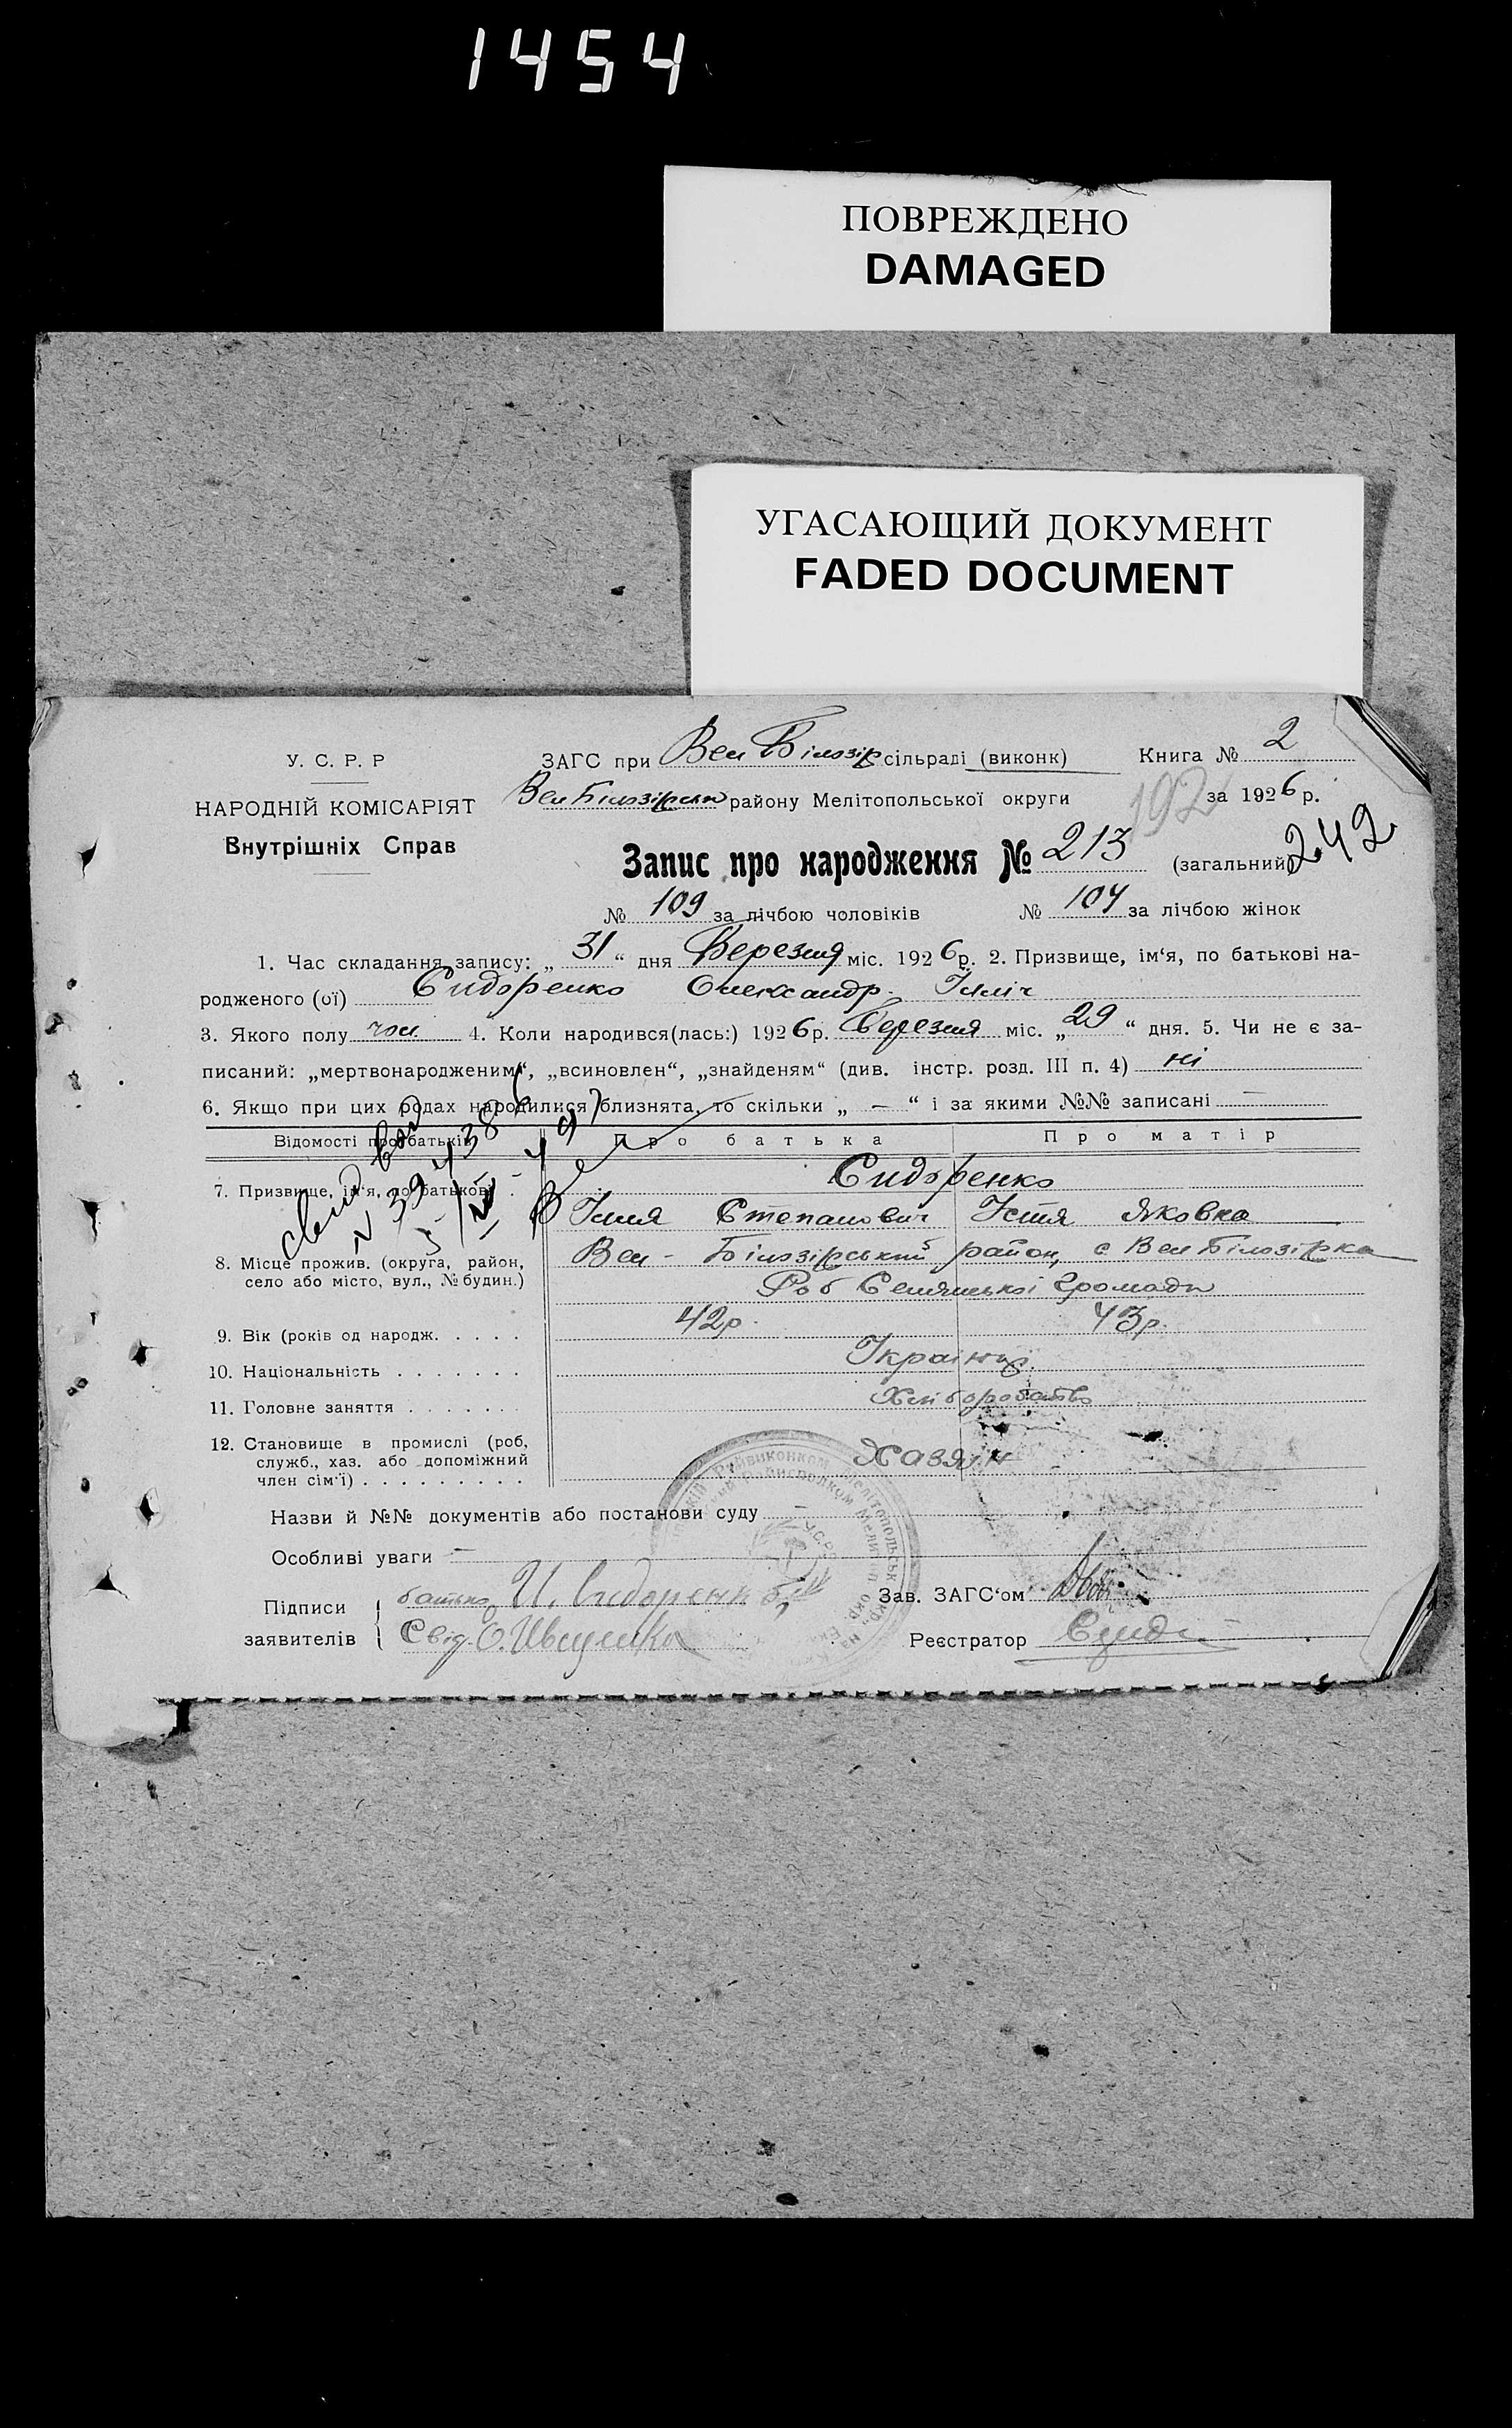 1454
ПОВРЕЖДЕНО
DAMAGED
УГАСАЮЩИЙ ДОКУМЕНТ
FADED DOCUMENT
У. С. Р. Р
НАРОДНІЙ КОМІСАРІЯТ
Внутрішніх Справ
ЗАГС при Вел Білозір сільраді (виконк) Книга № 2
Вел Білозірськ району Мелітопольської округи 192 за 1926 р.
Запис про народження № 213 (загальний) 242
№ 109 за лічбою чоловіків № 104 за лічбою жінок
1. Час складання запису: „ 31 “ дня Березня міс. 1926 р. 2. Призвище, ім‘я, по батькові на-
родженого (ої) Сидоренко Олександр Ілліч
3. Якого полу чол. 4. Коли народився(лась:) 1926 р. Березня міс. „ 29 “ дня. 5. Чи не є за-
писаний: „мертвонародженим“, „всиновлен“, „знайденям“ (див. інстр. розд. III п. 4) ні
6. Якщо при цих родах народилися близнята, то скільки „ — “ і за якими №№ записані —
Відомості про батьків Про батька Про матір
7. Призвище, ім‘я, по батькові . Сидоренко
Ілля Степанович Устя Яковна
8. Місце прожив. (округа, район,
село або місто, вул., № будин.)
Вел - Білозірський район, с Вел Білозірка
Роб Селянської громади
9. Вік (років од народж. . . . . 42 р. 43 р.
10. Національність . . . . . . . Українці
11. Головне заняття . . . . . . . Хліборобство
12. Становище в промислі (роб,
служб., хаз. або допоміжний
член сім‘ї) . . . . . . . . . Хазяїн
Назви й №№ документів або постанови суду —
Особливі уваги —
Підписи
заявителів
батько И. Сидоренк
Свід. О.
Зав. ЗАГС‘ом
Реєстратор